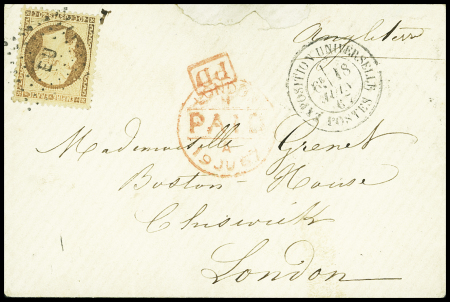 Angleterre
EU
PD
EXPOSITION UNIVERSELLE
18
JUIN
67
POSTES
LONDON
PAID
19 JU 67
Mademoiselle Grenet
Boston-House
Chiswick
London